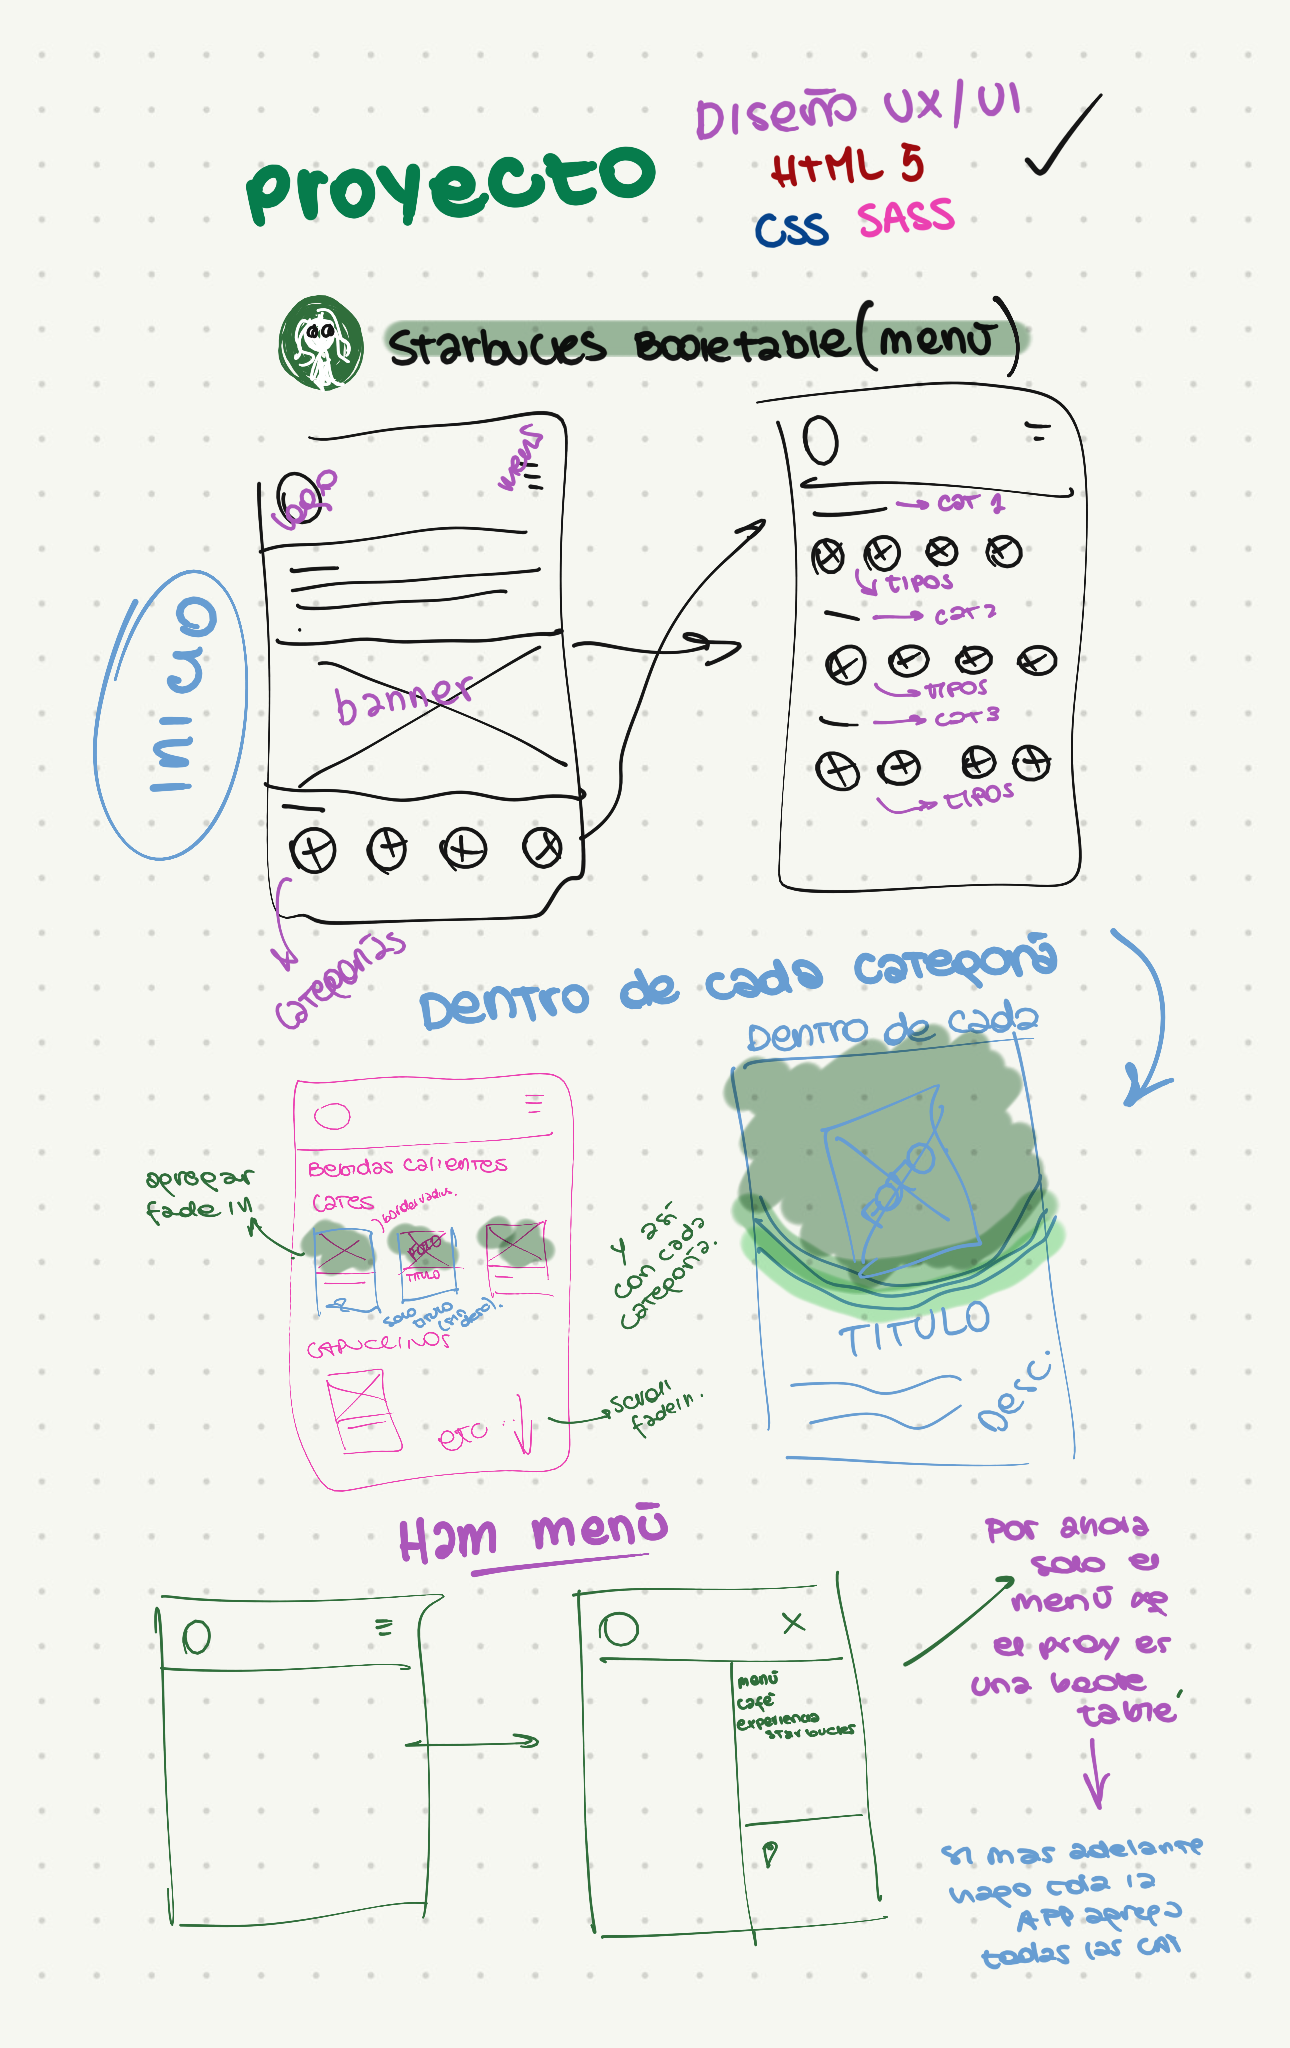 Proyecto
Diseño UX/UI
HTML 5
CSS SASS
Starbucks Booketable (menú)
logo
menú
banner
Inicio
categorías
cat 1
tipos
cat 2
tipos
cat 3
tipos
Dentro de cada categoría
Dentro de cada
Bebidas calientes
cafes
border radius.
agregar
fade in
FOTO
TITULO
solo
titulo
(sin
desc).
capuccinos
etc
scroll
fadein.
y así
con cada
categoría.
FOTO
TITULO
Desc.
Ham menú
menú
café
experiencia
starbucks
Por ahora
solo el
menú
el proy es
una booke
table
si mas adelante
hago toda la
APP agrego
todas las CAT